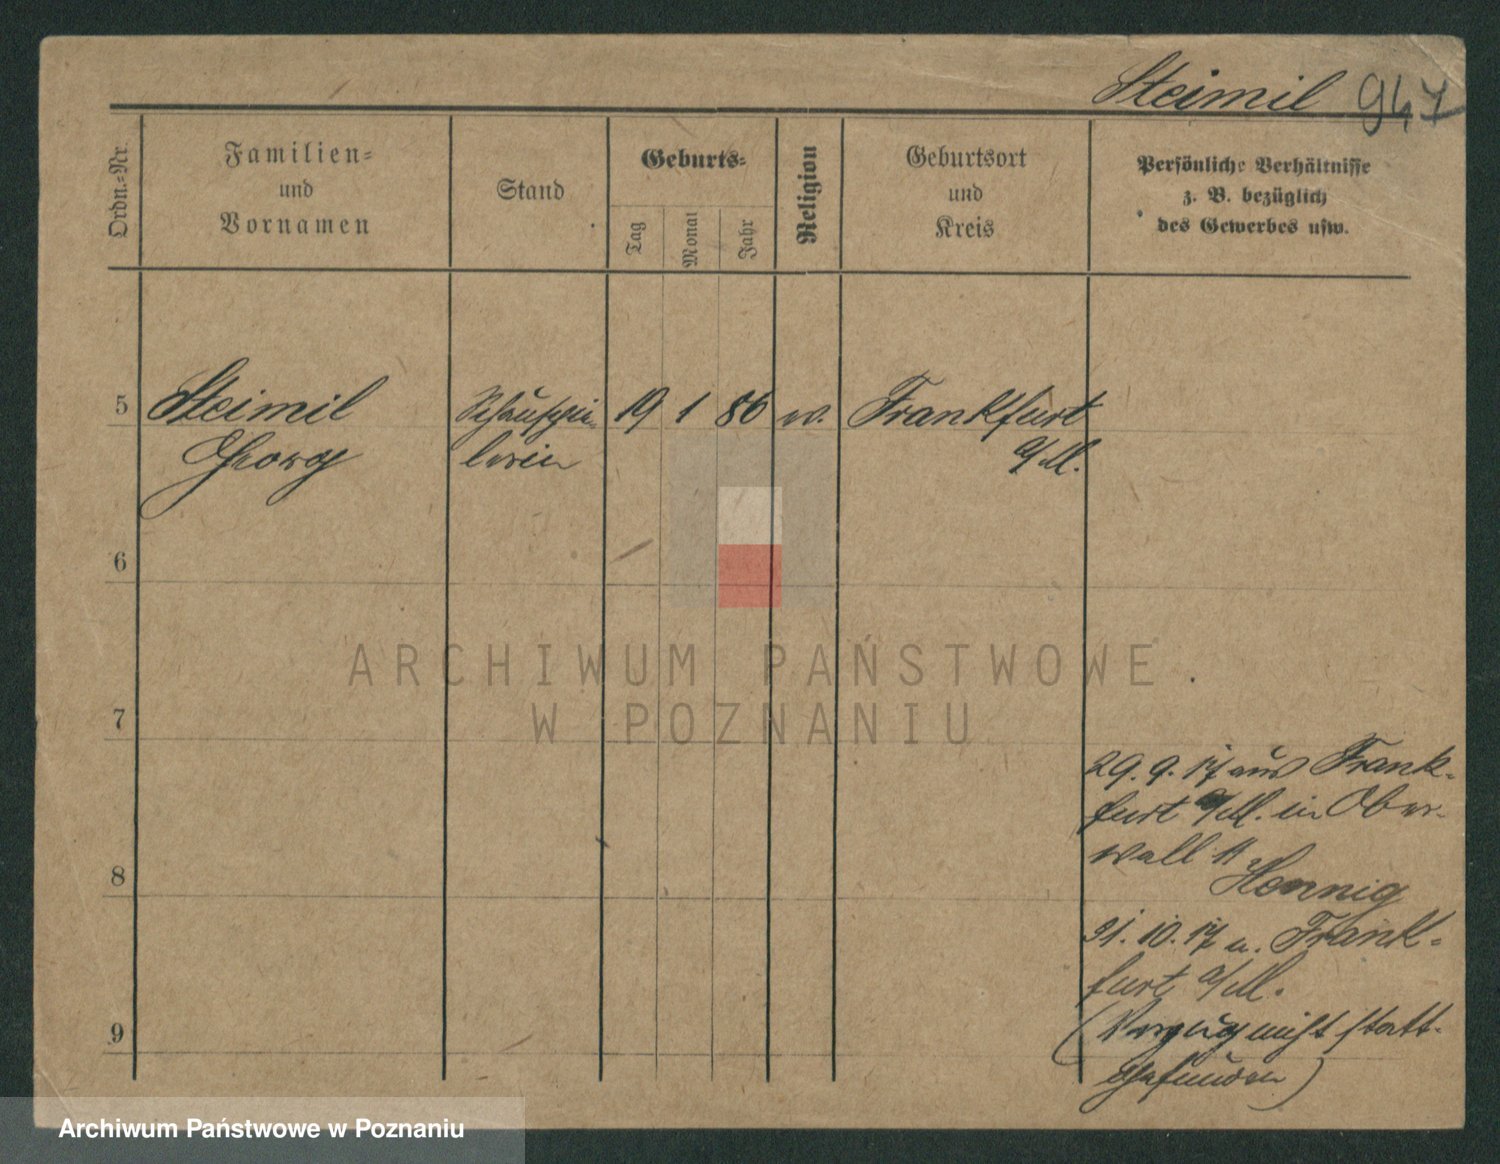 Steimil 947
Ordn.-Nr.
Familien-
und
Vornamen
Stand
Geburts-
Tag
Monat
Jahr
Religion
Geburtsort
und
Kreis
Persönliche Verhältnisse
z. B. bezüglich
des Gewerbes usw.
5 Steimil Schauspie- 19 1 86 Frankfurt
Georg lerin a/M.
6
ARCHIWUM PAŃSTWOWE
W POZNANIU
7
29. 9. 17 aus Frank-
furt a/M. in Ober-
wall
8
Hennig
31. 10. 17 n. Frank-
furt a/M.
9
(Verzug nicht statt-
gefunden)
Archiwum Państwowe w Poznaniu